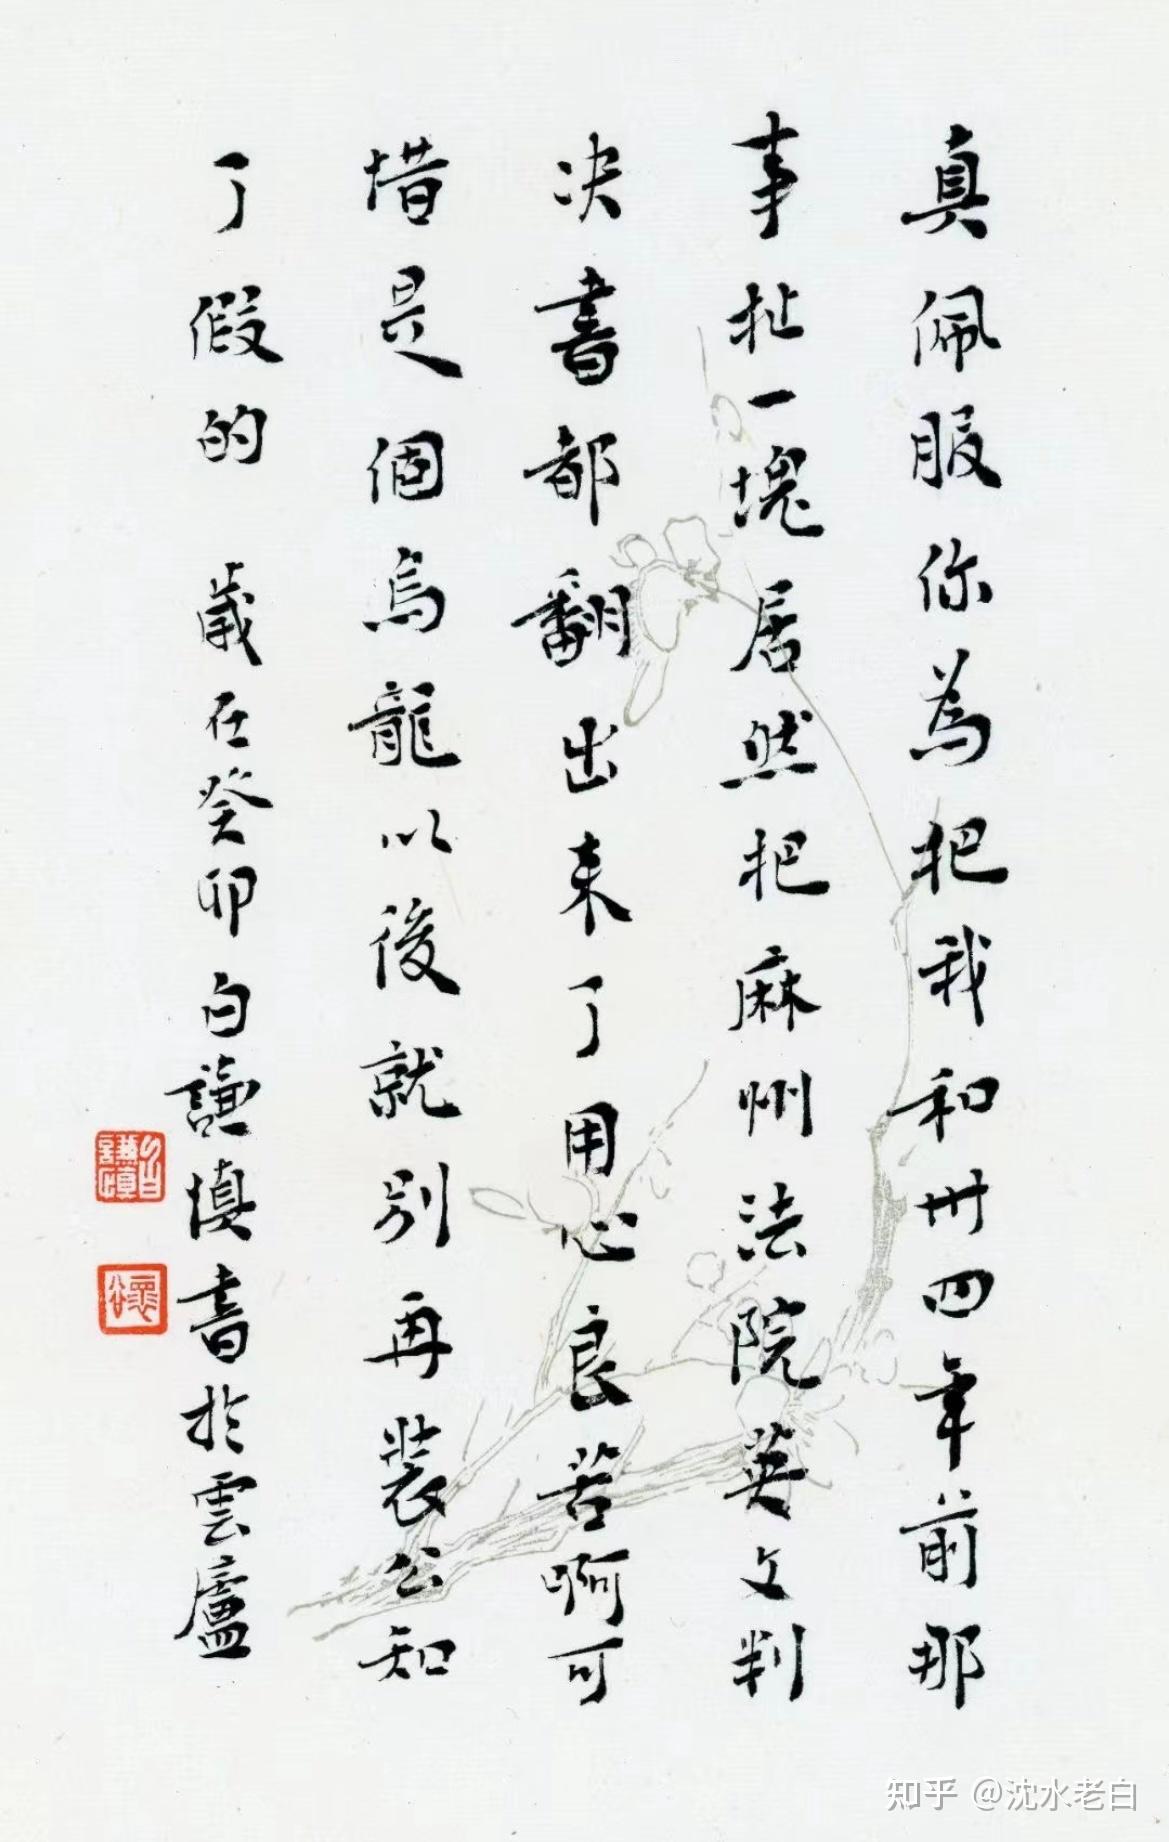 真佩服你為把我和卅四年前那
事扯一塊居然把麻州法院英文判
决書都翻出来了用心良苦啊可
惜是個烏龍以後就別再装公知
了假的 歲在癸卯白謙慎書於雲廬
白謙慎
知乎 @沈水老白